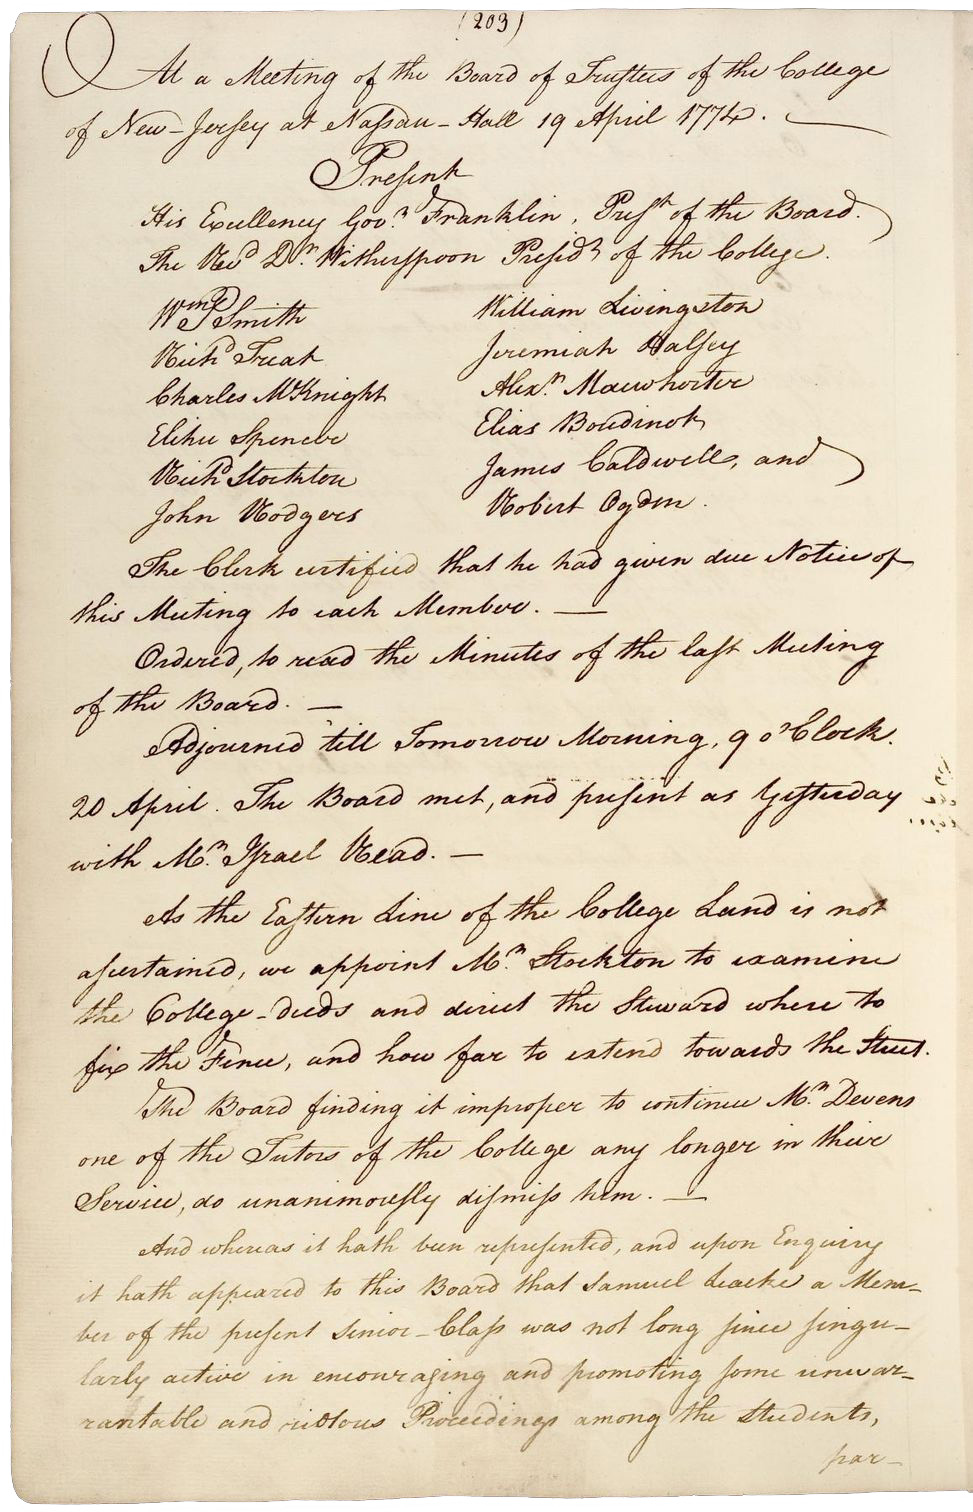 (203)
At a Meeting of the Board of Trustees of the College
of New-Jersey at Nassau-Hall 19 April 1774.
Present
His Excellency Govr. Franklin, Prest. of the Board.
The Revd. Dr. Witherspoon Presidt. of the College.
Wm. P. Smith
William Livingston
Richd. Treat
Jeremiah Halsey
Charles McKnight
Alexr. Macwhorter
Elihu Spencer
Elias Boudinot
Richd. Stockton
James Caldwell, and
John Rodgers
Robert Ogden.
The Clerk certified that he had given due Notice of
this Meeting to each Member. —
Ordered, to read the Minutes of the last Meeting
of the Board. —
Adjourned 'till Tomorrow Morning, 9 o'Clock.
20 April. The Board met, and present as Yesterday
with Mr. Israel Read. —
As the Eastern Line of the College Land is not
ascertained, we appoint Mr. Stockton to examine
the College-deeds and direct the Steward where to
fix the Fence, and how far to extend towards the Street.
The Board finding it improper to continue Mr. Devens
one of the Tutors of the College any longer in their
Service, do unanimously dismiss him. —
And whereas it hath been represented, and upon Enquiry
it hath appeared to this Board that Samuel Leake a Mem-
ber of the present Senior-Class was not long since singu-
larly active in encouraging and promoting some unwar-
rantable and riotous Proceedings among the Students,
par-